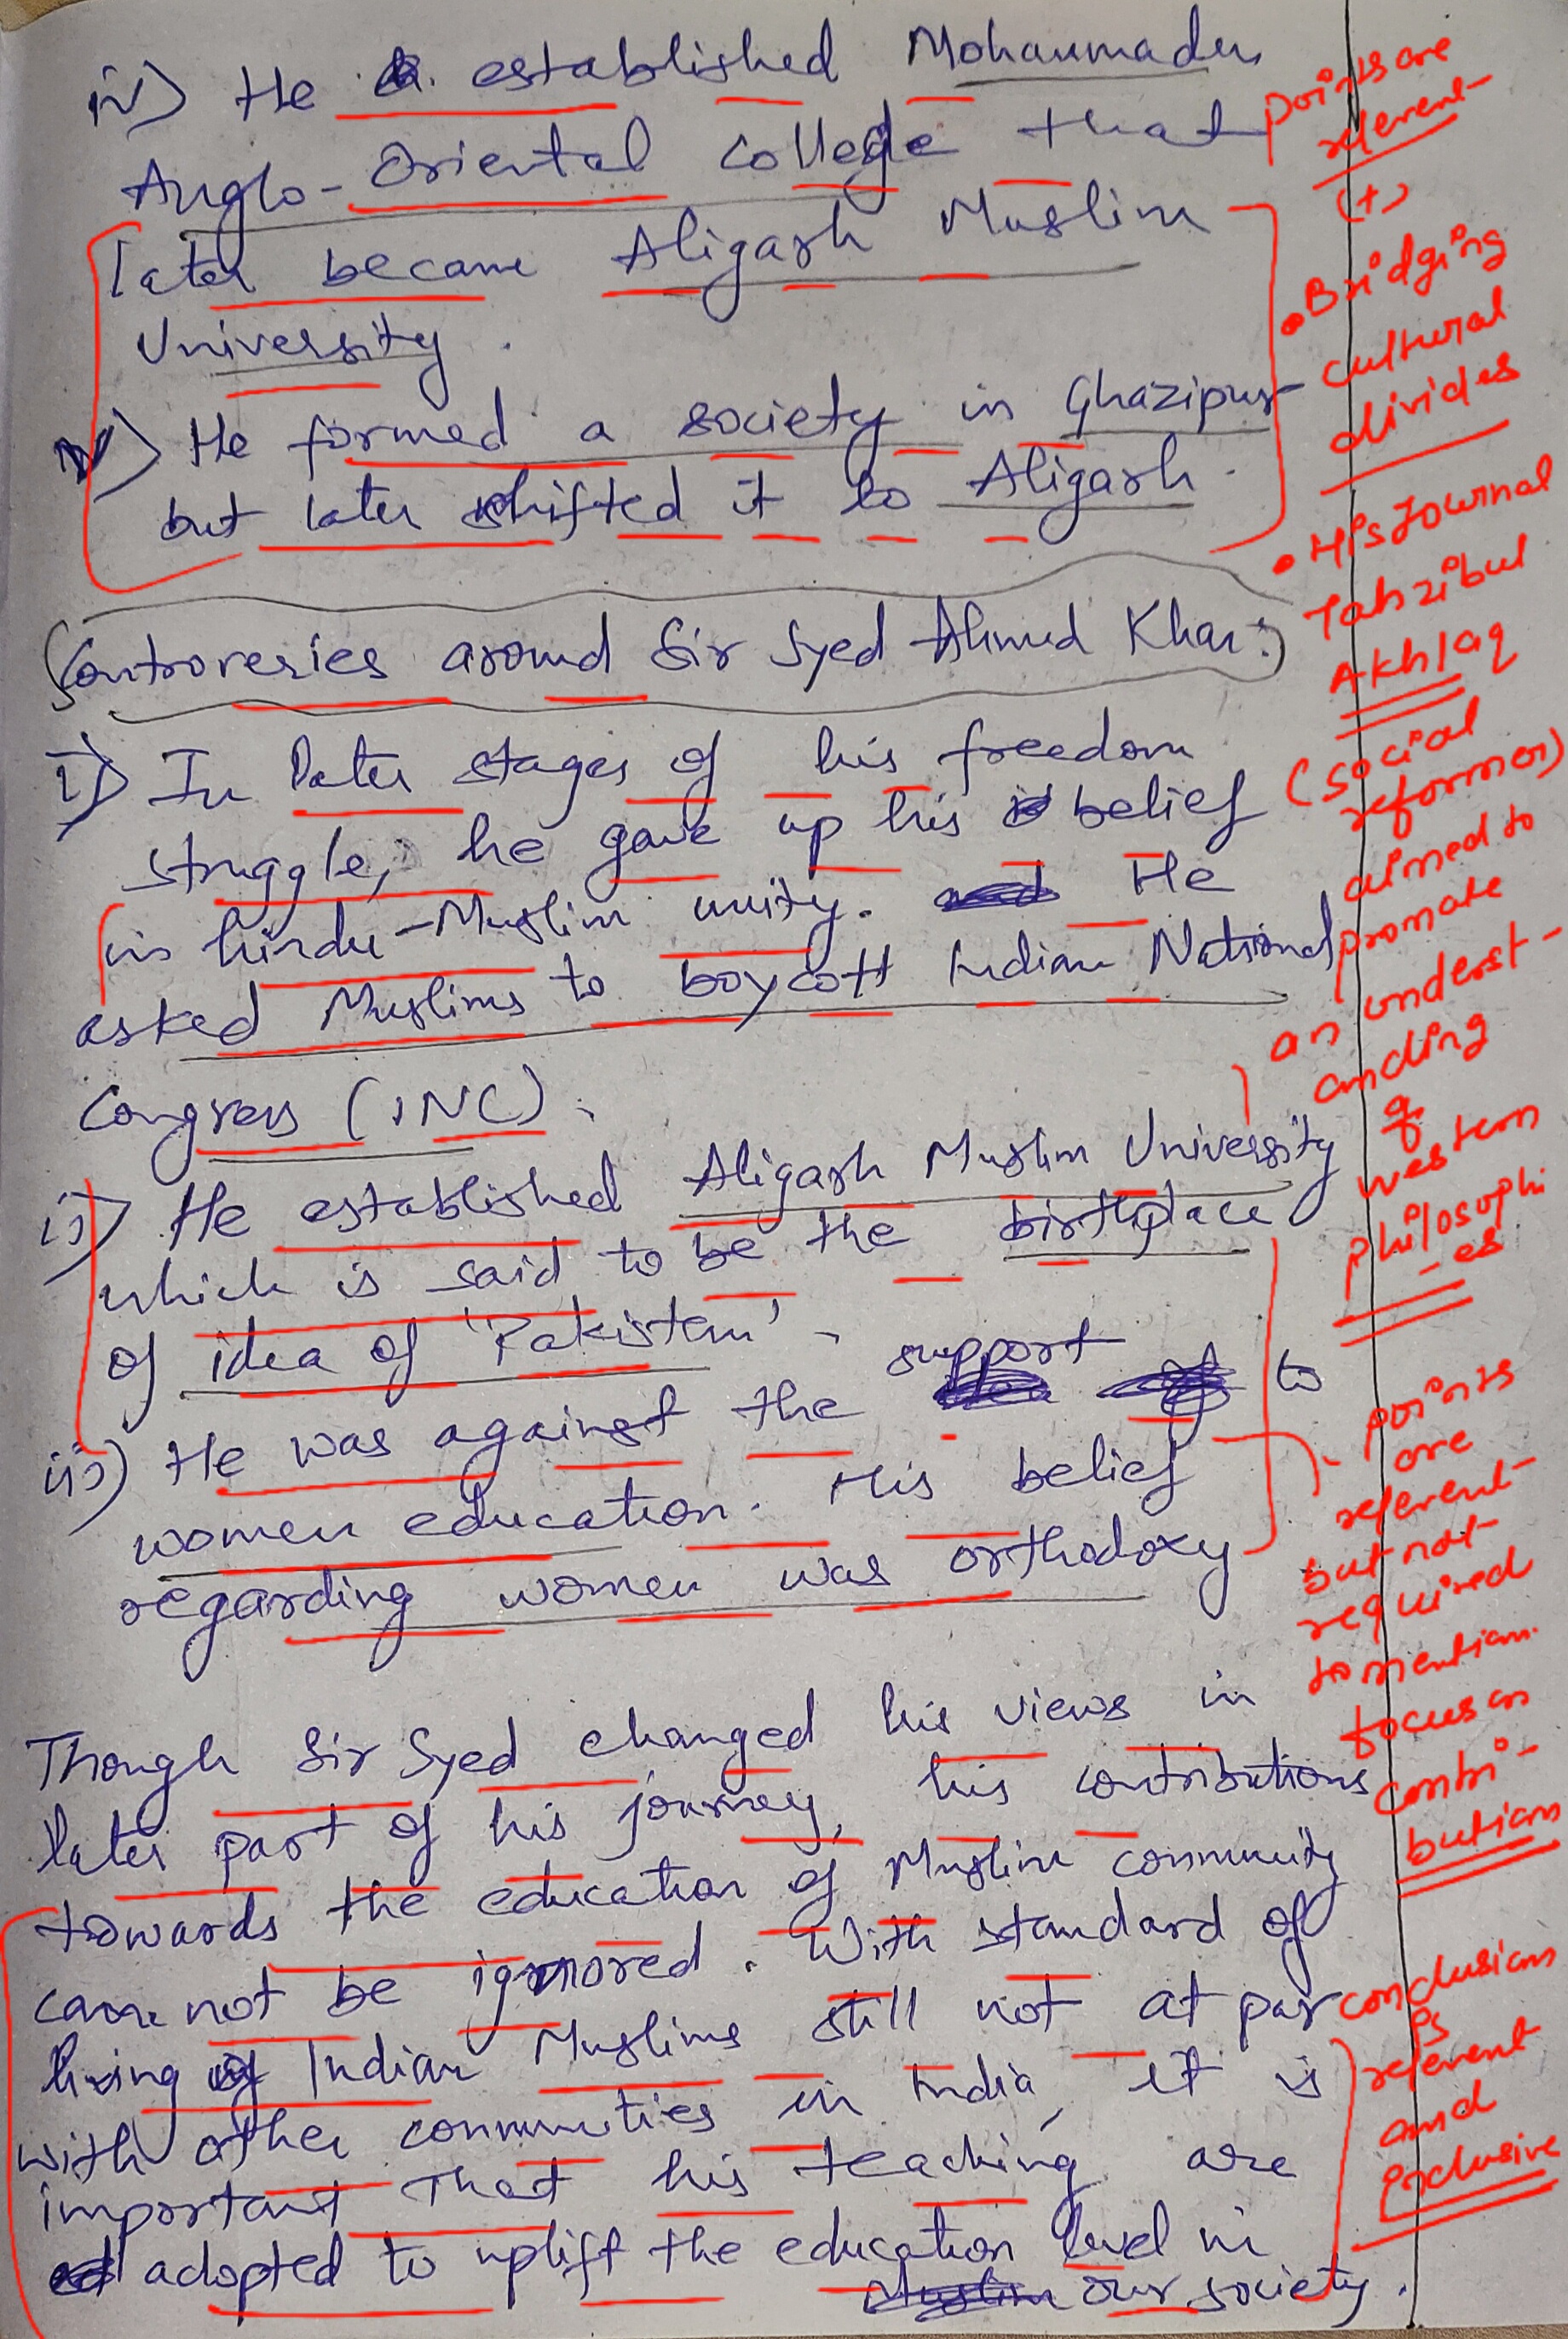 iv) He established Mohammaden
Anglo-Oriental College that
later became Aligarh Muslim
University.
v) He formed a society in Ghazipur
but later shifted it to Aligarh.
Controversies around Sir Syed Ahmed Khan:
i) In later stages of his freedom
struggle, he gave up his belief
in hindu-Muslim unity. He
asked Muslims to boycott Indian National
Congress (INC).
ii) He established Aligarh Muslim University
which is said to be the birthplace
of idea of 'Pakistan'.
iii) He was against the support to
women education. His belief
regarding women was orthodoxy
Though Sir Syed changed his views in
later part of his journey, his contributions
towards the education of Muslim community
can not be ignored. With standard of
living of Indian Muslims still not at par
with other communities in India, it is
important that his teaching are
adopted to uplift the education level in
our society.
points are
relevent
(+)
• Bridging
cultural
divides
• His Journal
Tahzibul
Akhlaq
(social
reformer)
aimed to
promote
an underst-
anding
of
western
philosophi
-es
points
are
relevent
but not
required
to mention.
focus on
contri-
butions
conclusion
is
relevent
and
inclusive